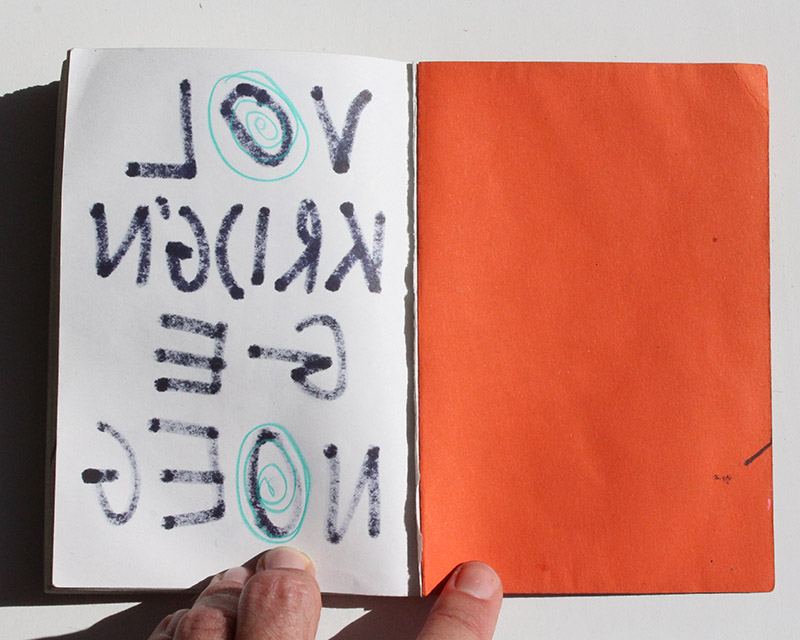 VOL
KRIJG'N
G-E
NOEG